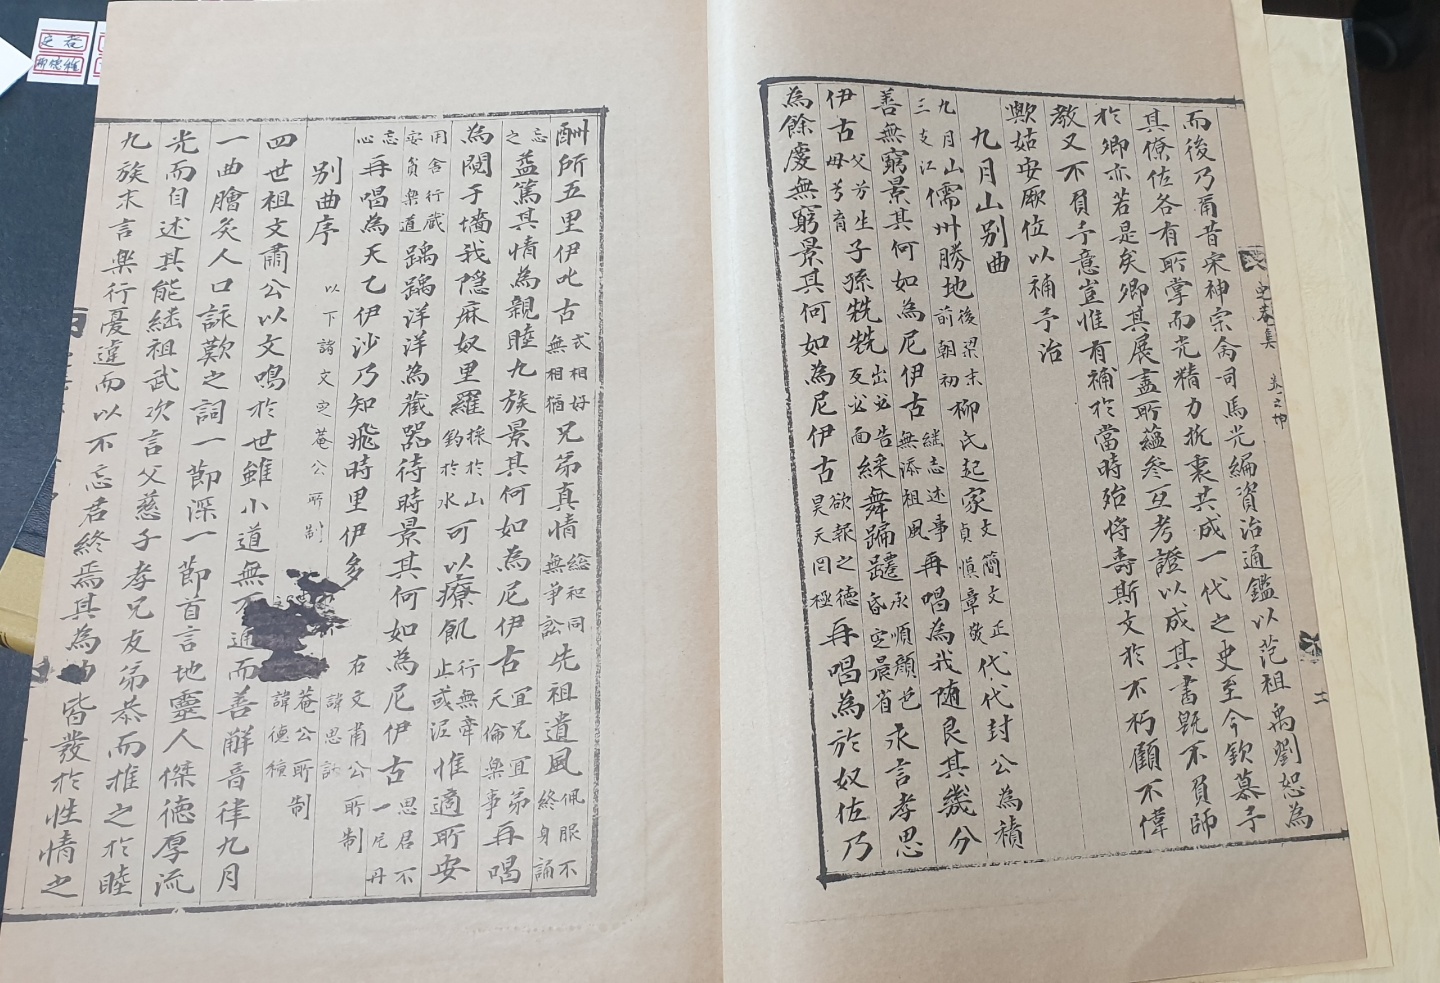 而後乃爾昔宋神宗命司馬光編資治通鑑以范祖禹劉恕為
其僚佐各有所掌而光精力於裏共成一代之史至今欽慕予
於卿亦若是矣卿其展盡所蘊參互考證以成其書旣不負師
教又不負予意豈惟有補於當時殆將壽斯文於不朽顧不偉
歟姑安厥位以補予治
九月山別曲
九月山三支江儒州勝地後梁末前朝初柳氏起家文簡文正貞愼章敬代代封公為積
善無窮景其何如為尼伊古繼志述事無添祖風再唱為我随良其幾分
伊古父兮生毋兮育子孫兟兟出必告反必面綵舞蹁躚承順顔色昏定晨省永言孝思
為餘慶無窮景其何如為尼伊古欲報之德昊天罔極再唱為於奴佐乃
酬所五里伊叱古式相好無相猶兄弟真情総和同無爭訟先祖遺風佩服不忘終身誦之
益篤其情為親睦九族景其何如為尼伊古宜兄宜弟天倫樂事再唱
為鬩于墻我隱麻奴里羅採於山釣於水可以療飢行無牽止或泥惟適所安
用舍行藏安貧樂道踽踽洋洋為藏器待時景其何如為尼伊古思君不忘一片丹心
再唱為天乙伊沙乃知飛時里伊多 右文肅公所制
別曲序 以下諸文㝎菴公所制 諱思訥
四世祖文肅公以文鳴於世雖小道無不通而善解音律九月
菴公所制諱德種
一曲膾炙人口詠歎之詞一節深一節首言地靈人傑德厚流
光而自述其能継祖武次言父慈子孝兄友弟恭而推之於睦
九族末言樂行憂違而以不忘君終焉其為皆發於性情之
㝎菴集 卷之坤
十一
㝎菴
柳德種